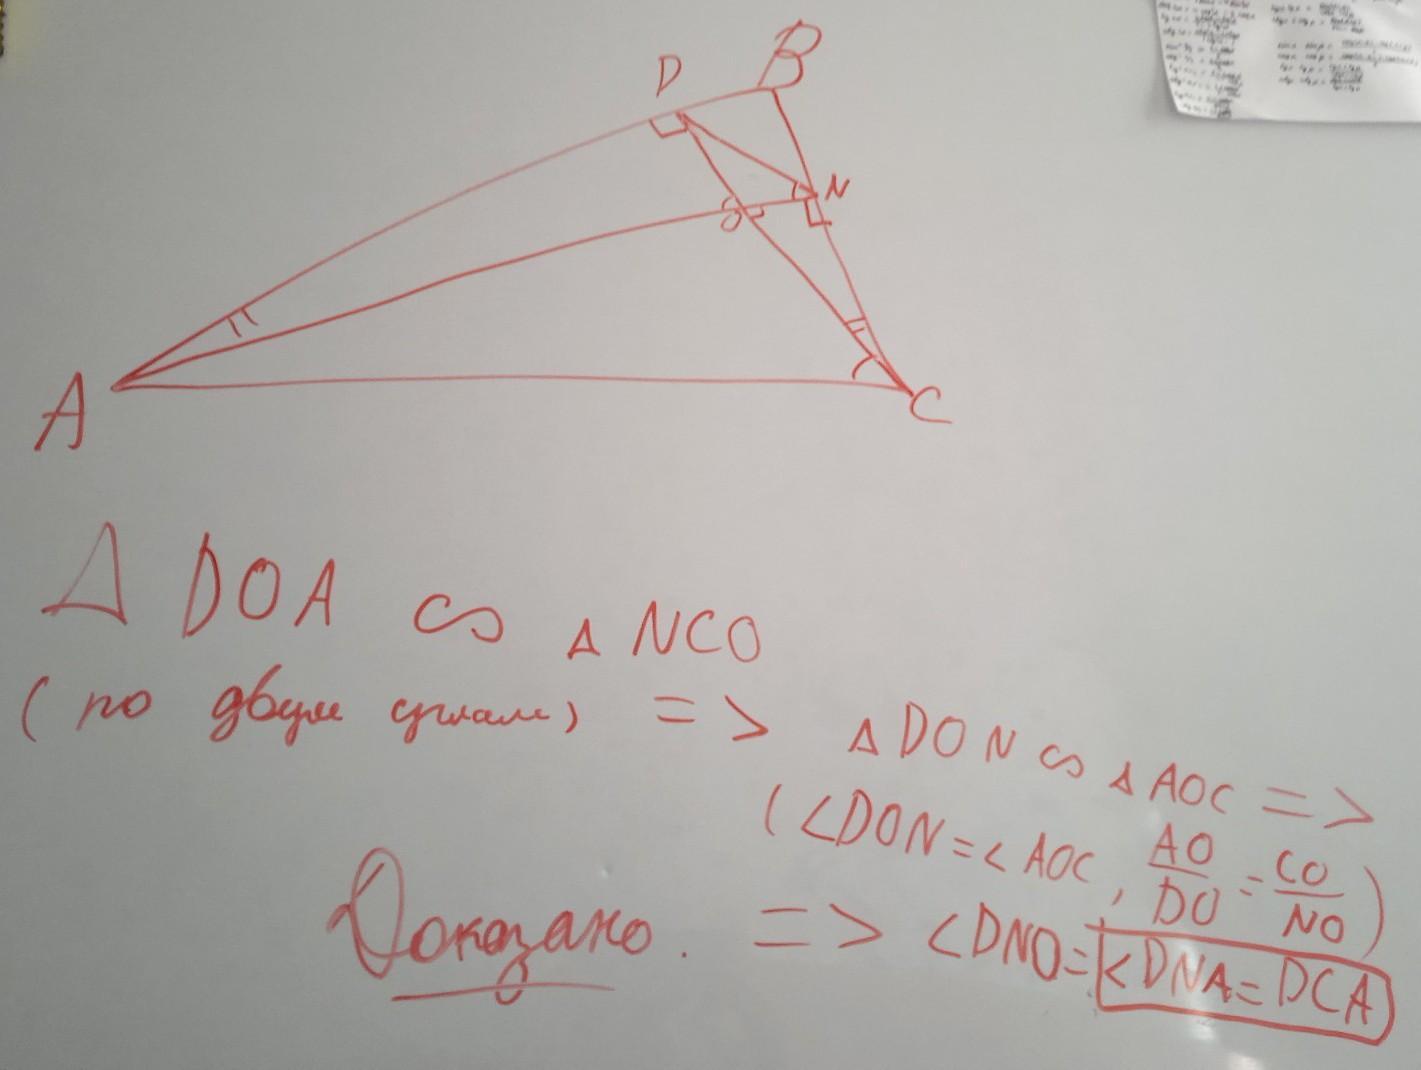 D
B
N
O
A
C
Δ DOA ∽ Δ NCO
(по двум углам) => Δ DON ∽ Δ AOC =>
(<DON = < AOC, AO/DO = CO/NO)
Доказано. => <DNO = <DNA = DCA